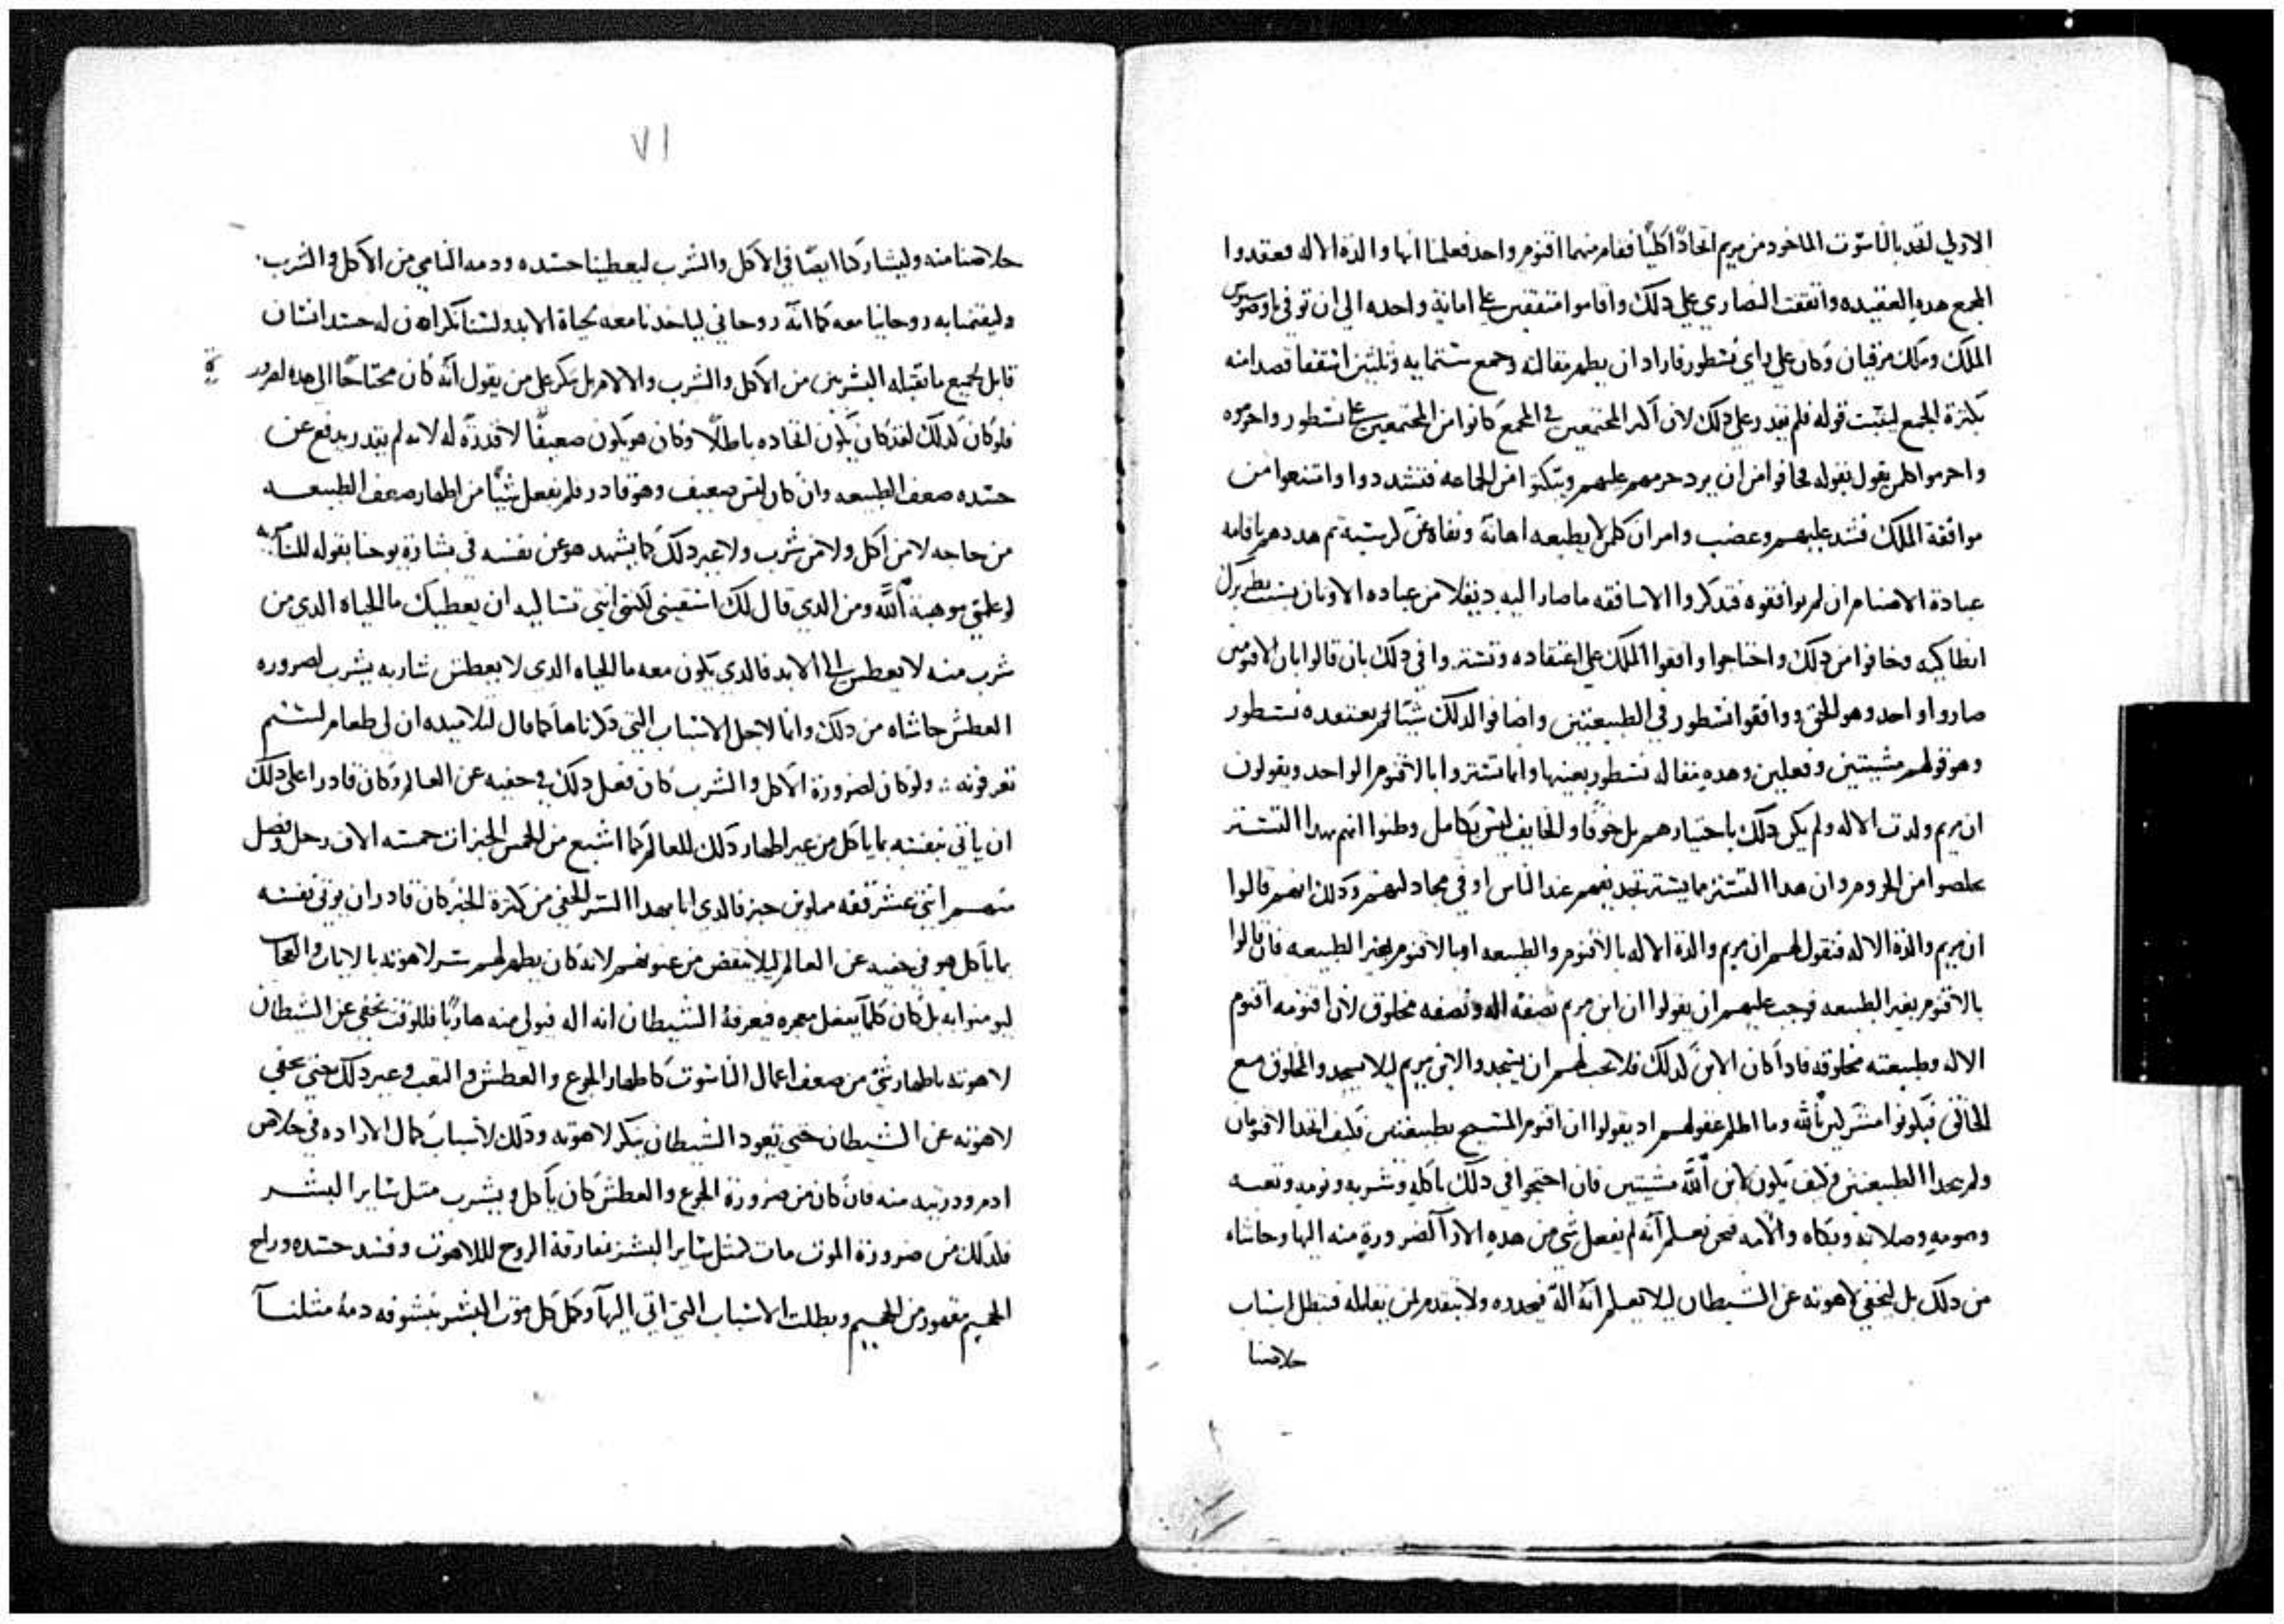 الازلي اتحد بالناسوت الماخود من مريم اتحادًا كليًا فقام منهما اقنوم واحد فعلمنا انها والدة الاله فعقدوا
المجمع هده العقيده واتفقت النصاري علي دلك واقاموا متفقين علي امانة واحده الي ان توفي تاوضوسيوس
الملك وملك مرقيان وكان علي راي نسطور فاراد ان يظهر مقالته وجمع ستمايه وثلثين اسقفا قصدا منه
بكثرة الجمع ليثبت قوله فلم يقدر علي دلك لان اكثر المجتمعين في المجمع كانوا من المجتمعين علي نسطور واحرموه
واحرموا كلمن يقول بقوله فخافوا من ان يرد حرمهم عليهم ويبكتوا من الجماعه فتشددوا وامتنعوا من
موافقة الملك فشد عليهم وغضب وامر ان كلمن لا يطيعه اهانة ونفاه عن كرسيه ثم هددهم باقامه
عبادة الاصنام ان لم يوافقوه فتدكروا الاساقفه ما صار اليه ديقلا من عباده الاوثان بسبب بطريرك
انطاكيه وخافوا من دلك واحتاجوا وافقوا الملك علي اعتقاده وتستروا في دلك بان قالوا بان الاقنومين
صاروا واحد وهو الحق ووافقوا نسطور في الطبيعتين واضافوا لدلك شيًا لم يعتقده نسطور
وهو قولهم مشيتين وفعلين وهده مقاله نسطور بعينها وانما تستروا بالاقنوم الواحد ويقولون
ان مريم ولدت الاله ولم يكن دلك باختيارهم بل خوفًا والخايف ليس بكامل وظنوا انهم بهدا التستر
يخلصوا من الحروم وان هدا التستر ما يستر تجديفهم عند الناس او في مجادلتهم ودلك انهم قالوا
ان مريم والدة الاله فنقول لهم ان مريم والدة الاله بالاقنوم والطبيعه او بالاقنوم بغير الطبيعه فان قالوا
بالاقنوم بغير الطبيعه فوجب عليهم ان يقولوا ان ابن مريم نصفه اله ونصفه مخلوق لان اقنومه اقنوم
الاله وطبيعته مخلوقه فادا كان الامر كدلك فلا يجب لهم ان يسجدوا لابن مريم ليلا يسجدوا لمخلوق مع
الخالق فيكونوا مشركين بالله وما اظلم عقولهم اد يقولوا ان اقنوم المسيح بطبيعتين فكيف اتحد الاقنومان
ولم يتحدا الطبيعتين وكيف يكون لابن الله مشيتين فان احتجوا في دلك باكله وشربه ونومه وتعبه
وصومه وصلاته وبكاه والامه فنحن نعلم انه لم يفعل شي من هده الا لضرورة منه اليها وحاشاه
من دلك بل ليخفي لاهوته عن الشيطان ليلا يعلم انه اله فيحدره ولا يتقدم لمن يقابله فتبطل اسباب
خلاصنا
٧١
خلاصنا منه وليشاركنا ايضًا في الاكل والشرب ليعطينا جسده ودمه النامي من الاكل والشرب
وليقيمنا به روحانيا معه كما انه روحاني لياخدنا معه لحياة الابد ولسنا نكر ان له جسد انسان
قابل لجميع ما تقبله البشريين من الاكل والشرب والالام بل نكر علي من يقول انه كان محتاجًا الي هده لضرور
ة
فلو كان كدلك لقد كان يكون اتحاده باطلًا وكان هو يكون ضعيفًا لا قدرة له لانه لم يقدر يدفع عن
جسده ضعف الطبيعه وان كان ليس ضعيف وهو قادر فلم يفعل شيًا من اظهار ضعف الطبيعه
من حاجه لا من اكل ولا من شرب ولا غير دلك كما يشهد هو عن نفسه في بشارة يوحنا بقوله للسامريه
لو علمتي موهبة الله ومن الدي قال لك اسقيني لكنتي انتي تساليه ان يعطيك ما الحياه الدي من
شرب منه لا يعطش الي الابد فالدي يكون معه ما الحياه الدي لا يعطش شاربه يشرب لضروره
العطش حاشاه من دلك وانما لاجل الاسباب التي دكرناها كما قال لتلاميده ان لي طعام لستم
تعرفونه ∴ ولو كان لضرورة الاكل والشرب كان فعل دلك في خفيه عن العالم وكان قادرا علي دلك
ان ياتي نفسه بما ياكل من غير اظهار دلك للعالم كما اشبع من الخمس الخبزات خمسه الاف رجل وفضل
منهم اثني عشر قفه مملوين خبز فالدي اتا بهدا السر الخفي من كثرة الخبز كان قادر ان يوتي نفسه
بما ياكل هو في خفيه عن العالم ليلا ينقص من عيونهم لانه كان يظهر لهم سر لاهوته بالايات والعجايب
ليومنوا به بل كان كلما يفعل معجزه فيعرفه الشيطان انه اله فيولي منه هاربًا فللوقت يخفي عن الشيطان
لاهوته باظهار شي من ضعف اعمال الناسوت كاظهار الجوع والعطش والتعب وغير دلك يعني يخفي
لاهوته عن الشيطان حتي يعود الشيطان ينكر لاهوته ودلك لاسباب كمال الاراده في خلاص
ادم ودريته منه فان كان من ضرورة الجوع والعطش كان ياكل ويشرب مثل ساير البشر
فلدلك من ضرورة الموت مات كمثل ساير البشر بمفارقة الروح لللاهوت وفسد جسده وراح
الجحيم مقهور من الجحيم وبطلت الاسباب التي اتي اليها وكمل كل موت البشر بشوقه دمه مثلنا